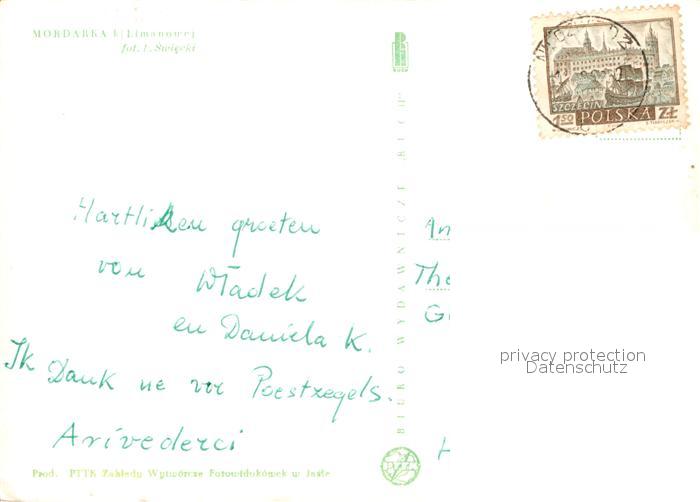 MORDARKA k/Limanowej
fot. F. Święcki
SZCZECIN
1.50 POLSKA ZŁ
Hartliken groeten
von Władek
en Daniela K.
Ik Dank ne vor Poestzegels.
Arivederci
BIURO WYDAWNICZE RUCH
An
The
G
H
privacy protection
Datenschutz
Prod. PTTK Zakłady Wytwórcze Fotowidokówek w Jaśle